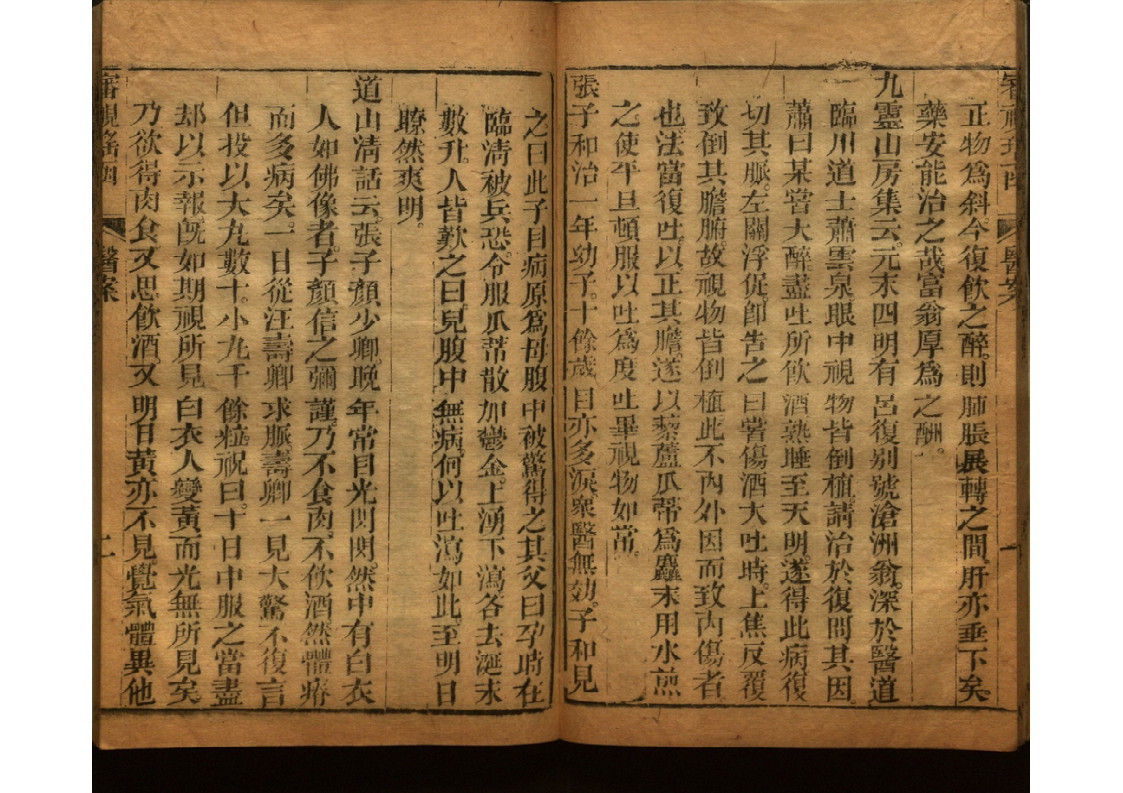 正物爲斜今復飲之醉則肺脹展轉之間肝亦垂下矣
藥安能治之哉富翁厚爲之酬。
九靈山房集云。元末四明有呂復别號滄洲翁。深於醫道
臨川道士蕭雲泉眼中視物皆倒植。請治於復問其因。
蕭曰某嘗大醉盡吐所飲酒熟睡至天明。遂得此病復
切其脈。左關浮促。卽告之曰嘗傷酒大吐時。上焦反覆
致倒其膽腑。故視物皆倒植此不內外因而致內傷者
也。法當復吐。以正其膽。遂以藜蘆瓜蒂爲麤末用水煎
之使平旦頓服以吐爲度吐畢視物如常。
張子和治一年幼子。十餘歲目亦多淚。衆醫無効。子和見
之曰此子目病原爲母腹中被驚得。之其父曰孕時在
臨清被兵恐。令服瓜蒂散加鬱金。上湧下瀉各去涎末
數升。人皆歎之曰。兒腹中無病。何以吐瀉如此至明日
瞭然爽明。
道山淸話云。張子顏少卿。晚年常目光閃閃。然中有白衣
人如佛像者。子顏信之彌謹。乃不食肉。不飲酒然體瘠
而多病矣。一日從汪壽卿求脈壽卿一見大驚不復言
但投以大丸數十。小丸千餘粒。祝曰。十日中服之當盡
却以示報旣如期視所見白衣人變黃。而光無所見矣
乃欲得肉食。又思飲酒。又明日黃亦不見。覺氣體異他
審視瑤函
醫案
一
審視瑤函
醫案
二